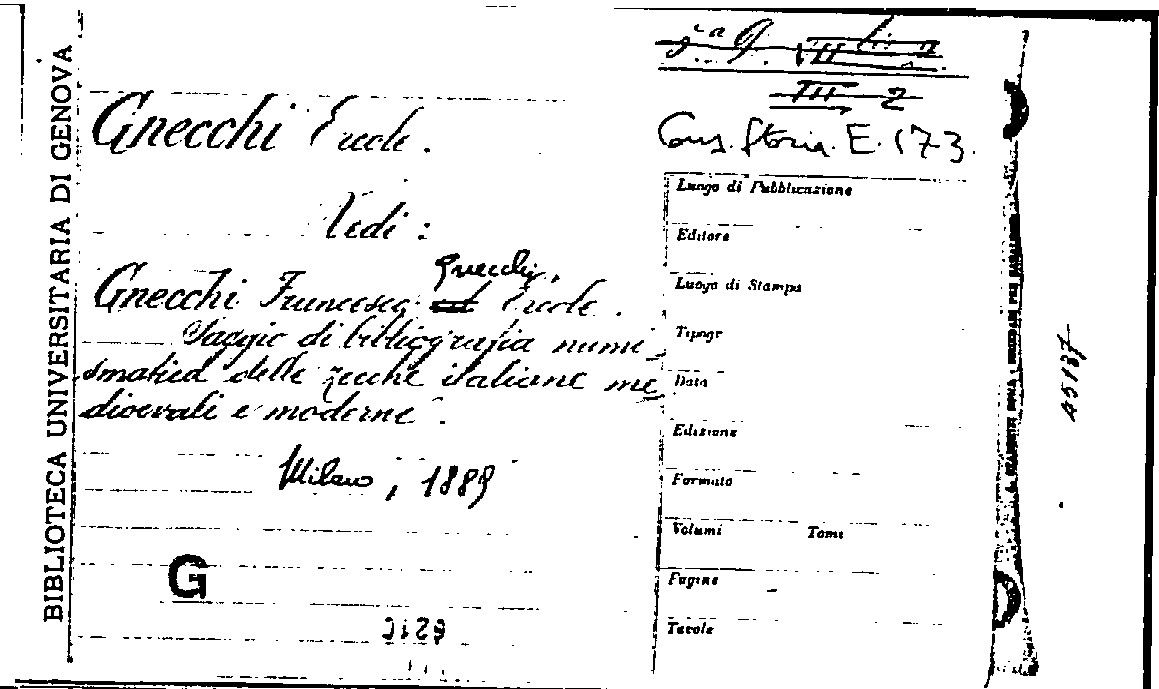 BIBLIOTECA UNIVERSITARIA DI GENOVA
Gnecchi Ercole.
Vedi:
Gnecchi Francesco
Gnecchi,
Ercole.
Saggio di bibliografia numi
smatica delle zecche italiane me
dioevali e moderne.
Milano, 1889
G
III 2
Cons. Storia. E. 173.
Luogo di Pubblicazione
Editore
Luogo di Stampa
Tipogr
Data
Edizione
Formato
Volumi Tomi
Pagine
Tavole